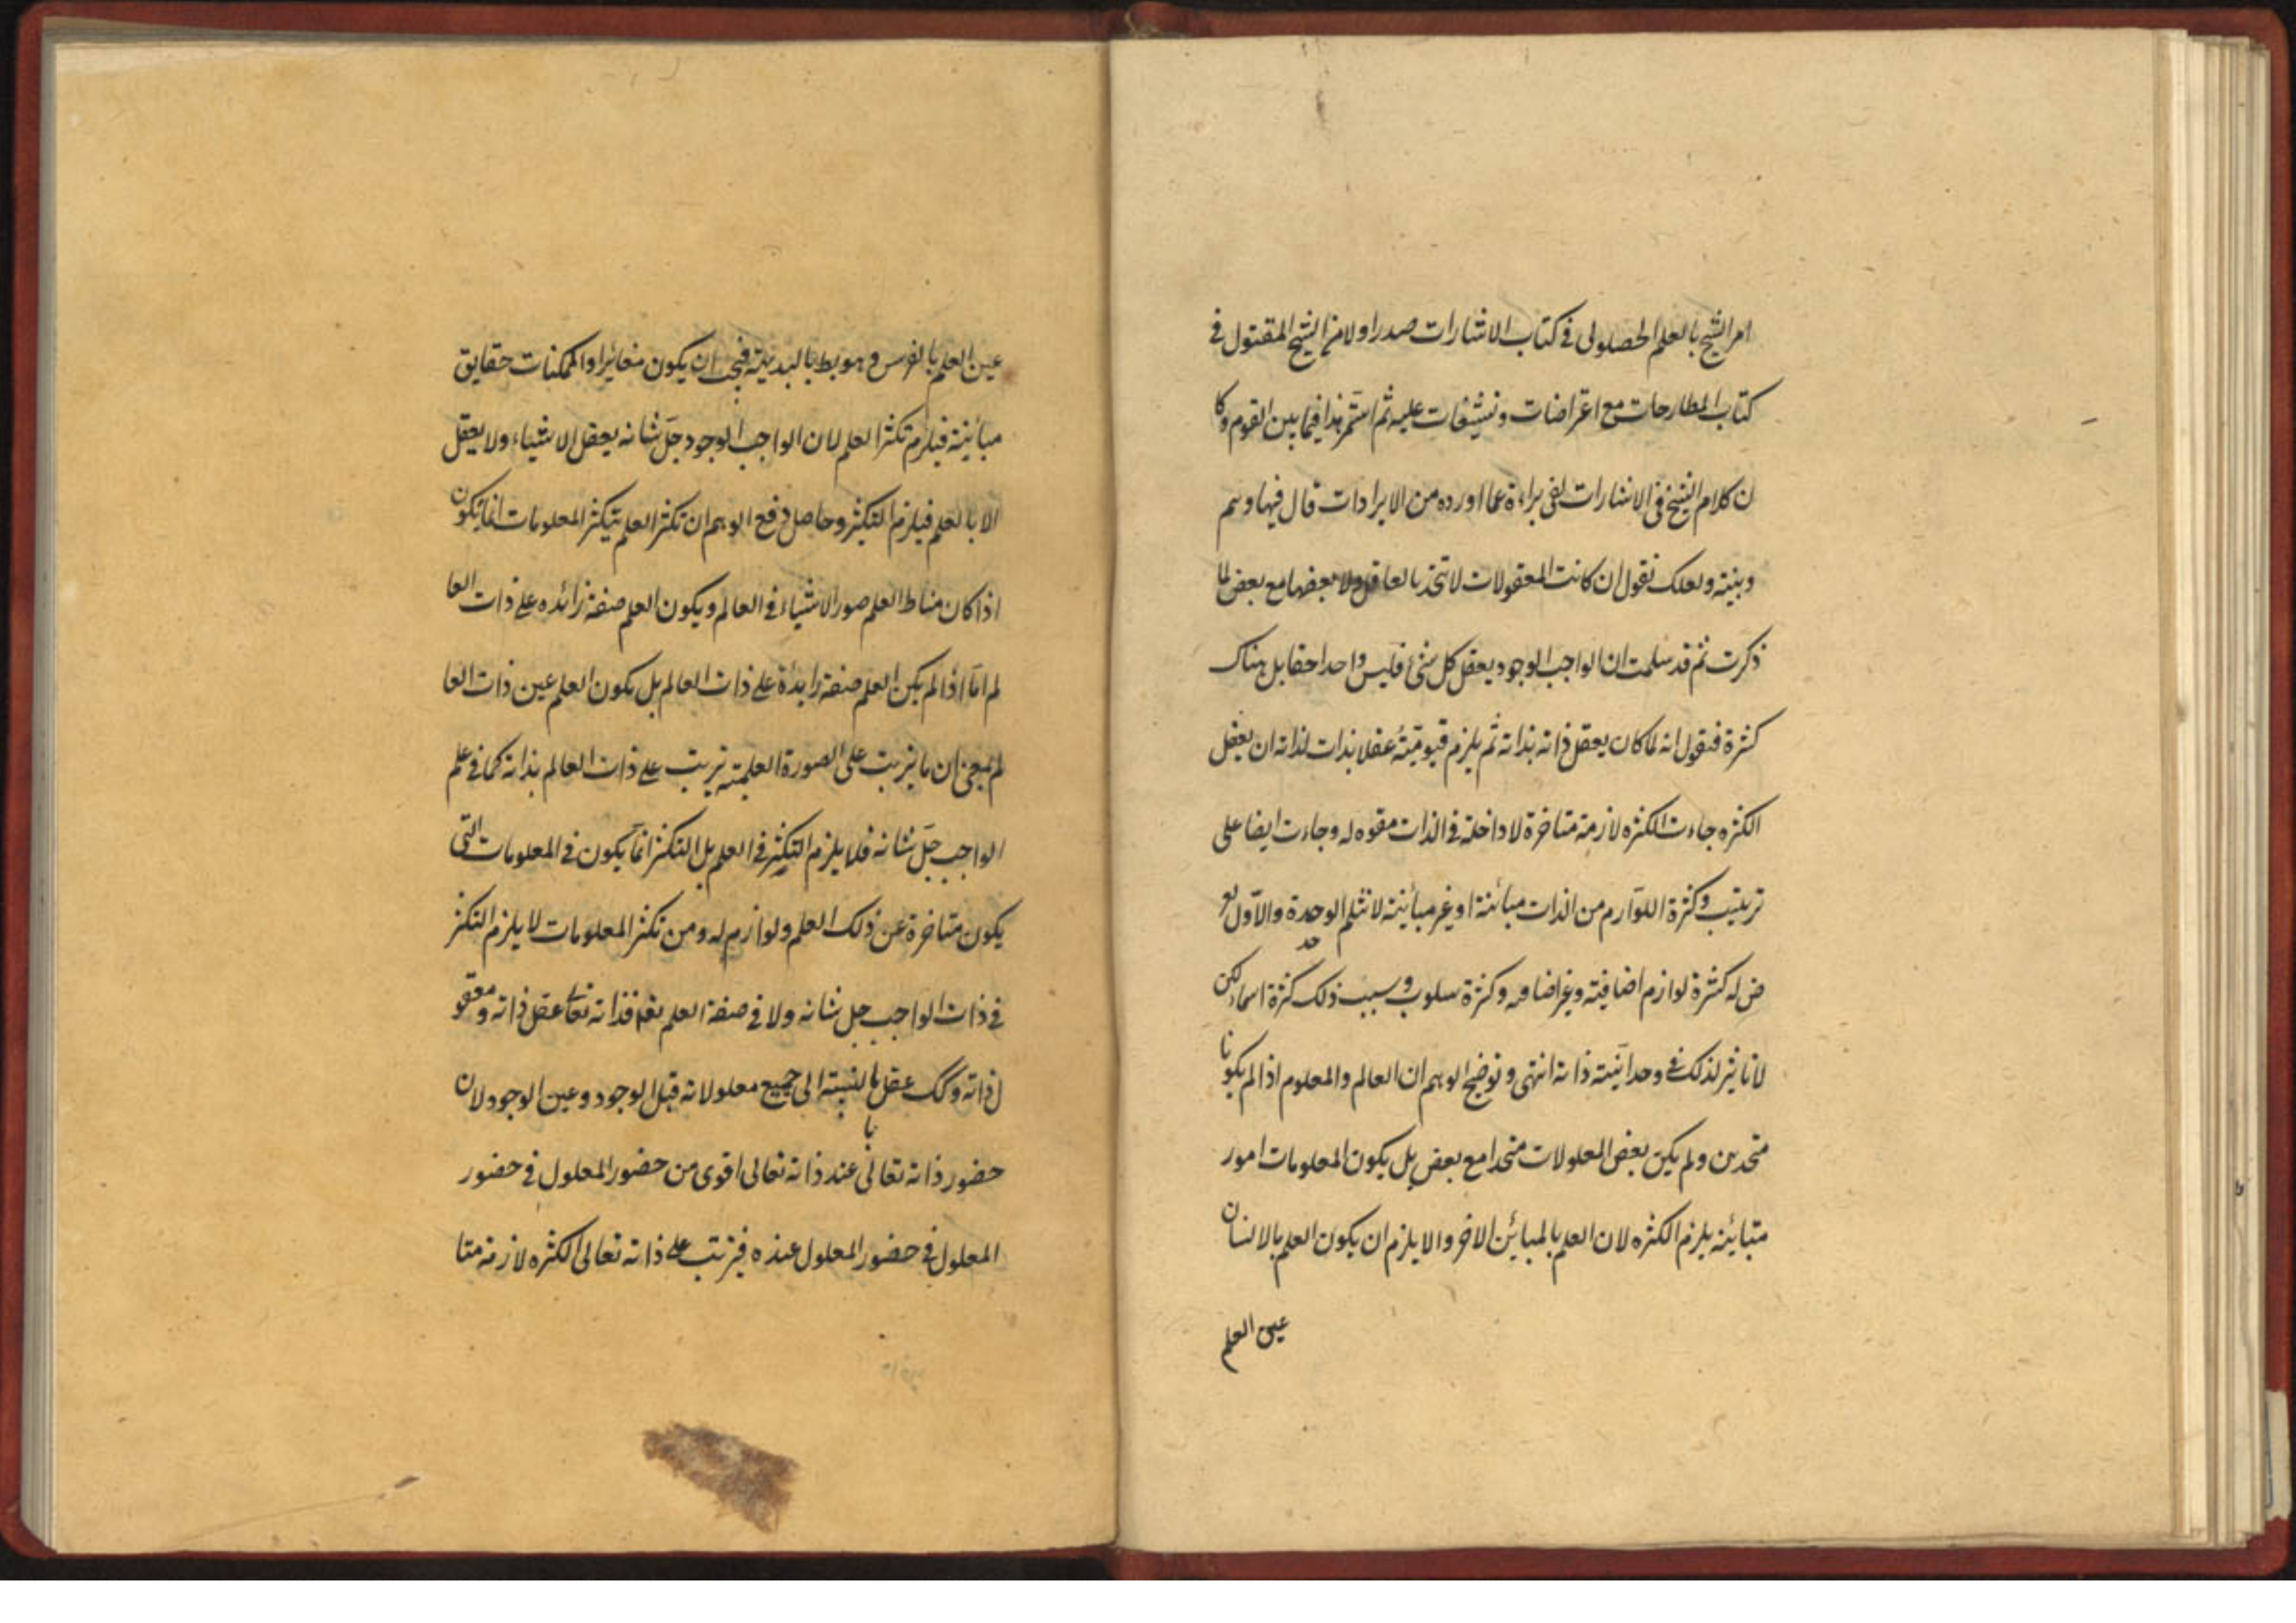 امر الشيخ بالعلم الحصولى فى كتاب الاشارات صدر اولا من الشيخ المقتول فى
كتاب المطارحات مع اعتراضات وتشنيعات عليه ثم استمر هذا فيما بين القوم وكا
ن كلام الشيخ فى الاشارات لفى براءة عما اورده من الايرادات قال فيها وهم
وتنبيه ولعلك تقول ان كانت المعقولات لا تتحد بالعاقل ولا بعضها مع بعض لما
ذكرت ثم قد سلمت ان الواجب الوجود يعقل كل شئ فليس واحدا حقا بل هناك
كثرة فنقول انه لما كان يعقل ذاته بذاته ثم يلزم قيوميته عقلا بذات لذاته ان يعقل
الكثره جاءت الكثره لازمة متاخرة لا داخلة فى الذات مقومه له وجاءت ايضا على
ترتيب وكثرة اللوازم من الذات مبائنة او غير مبائنة لا تثلم الوحدة والاول يعر
ض له كثرة لوازم اضافيته وغير اضافيه وكثرة سلوب وبسبب ذلك كثرة اسماء لكن
لا تاثير لذلك فى وحدانيته ذاته انتهى وتوضيح الوهم ان العالم والمعلوم اذا لم يكونا
متحدين ولم يكن بعض المعلولات متحدا مع بعض بل يكون المعلومات امور
متبائنه يلزم الكثره لان العلم بالمبائن الاخر والا يلزم ان يكون العلم بالانسان
عين العلم
عين العلم بالفرس وهو بط بالبديهة فيجب ان يكون مغائرا والممكنات حقايق
مبائنة فيلزم تكثر العلم لان الواجب الوجود جل شانه يعقل الاشياء ولا يعقل
الا بالعلم فيلزم التكثر وحاصل دفع الوهم ان تكثر العلم بتكثر المعلومات انما يكون
اذا كان مناط العلم صور الاشياء فى العالم ويكون العلم صفة زائده على ذات العا
لم اما اذا لم يكن العلم صفة زايدة على ذات العالم بل يكون العلم عين ذات العا
لم بمعنى ان ما يترتب على الصورة العلمية يترتب على ذات العالم بذاته كما فى علم
الواجب جل شانه فلا يلزم التكثر فى العلم بل التكثر انما يكون فى المعلومات التى
يكون متاخرة عن ذلك العلم ولوازم له ومن تكثر المعلومات لا يلزم التكثر
فى ذات الواجب جل شانه ولا فى صفة العلم نعم فذاته تعالى عقل ذاته ومعقو
ل ذاته وكك عقل بالنسبة الى جميع معلولاته قبل الوجود وعين الوجود لان
حضور ذاته تعالى عند ذاته تعالى اقوى من حضور المعلول فى حضور
المعلول فى حضور المعلول عنده فيترتب على ذاته تعالى الكثره لازمة متا